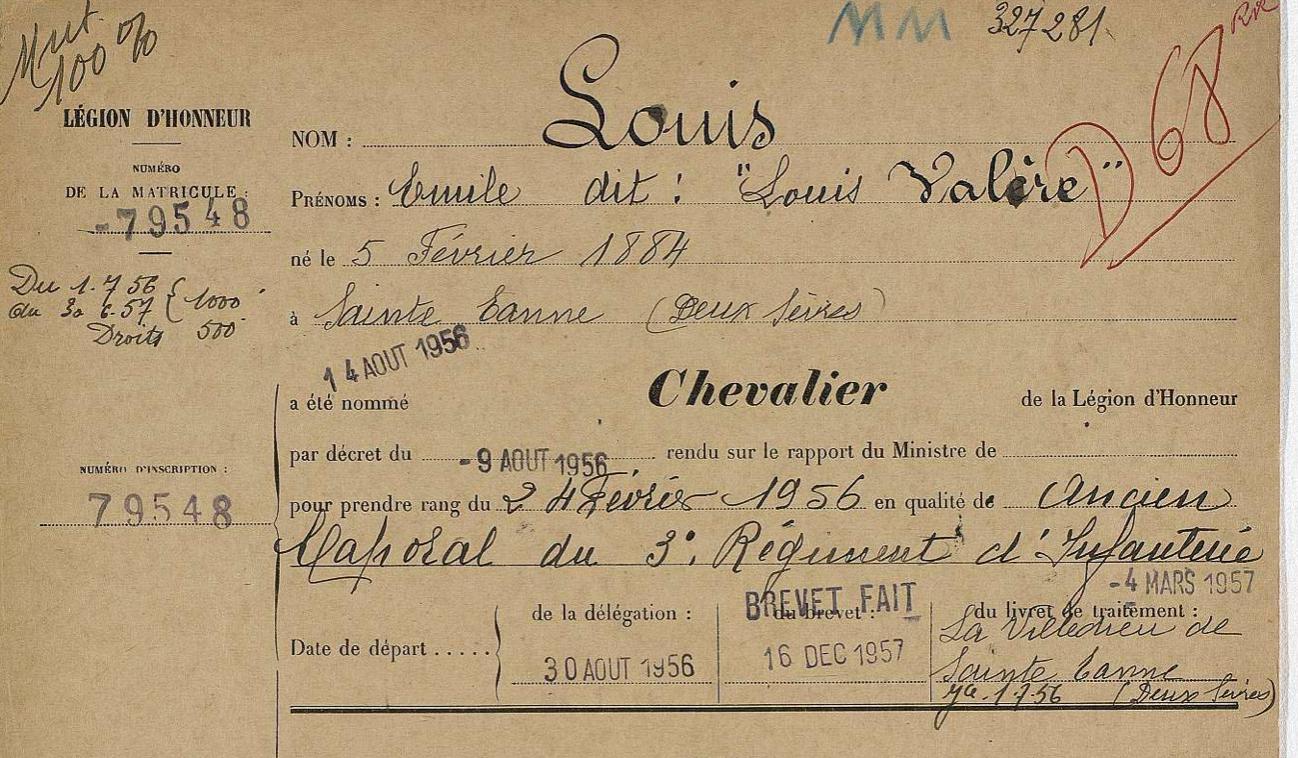 Mut. 100 %
MM 327281.
D 68 RR
LÉGION D'HONNEUR
NUMÉRO
DE LA MATRICULE :
-79548
Du 1.7 56
au 30 6.57 { 1000
Droits 500
NUMÉRO D'INSCRIPTION :
79548
NOM : Louis
PRÉNOMS : Emile dit : "Louis Valère"
né le 5 Février 1884
à Sainte Eanne (Deux Sèvres)
14 AOUT 1956
a été nommé Chevalier de la Légion d'Honneur
par décret du -9 AOUT 1956 rendu sur le rapport du Ministre de
pour prendre rang du 24 Février 1956 en qualité de Ancien
Caporal du 3e. Régiment d'Infanterie
Date de départ .....
de la délégation :
30 AOUT 1956
du brevet :
BREVET FAIT
16 DEC 1957
-4 MARS 1957
du livret de traitement :
La Villedieu de
Sainte Eanne
1.7.56 (Deux Sèvres)